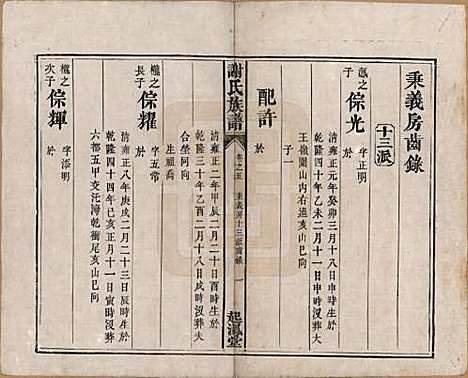 秉義房齒錄
十三派
瀛之子
倧光
字正明
於
清雍正元年癸卯三月十八日申時生於
乾隆四十年乙未二月十一日申時沒葬
王嶺園山內右邊亥山巳向
子一
配許
於
謝氏族譜
卷之五
秉義房十三派齒錄
一
起瀛堂
櫳之長子
倧耀
字五常
於
清雍正二年甲辰二月十日酉時生於
乾隆三十年乙酉二月十八日戌時沒葬大
合坐丙向
生頫喬
櫳之次子
倧輝
字添明
於
清雍正八年庚戌二月二十三日辰時生於
乾隆四十四年己亥十月十一日寅時沒葬
六都五甲交託濤乾衝尾亥山巳向